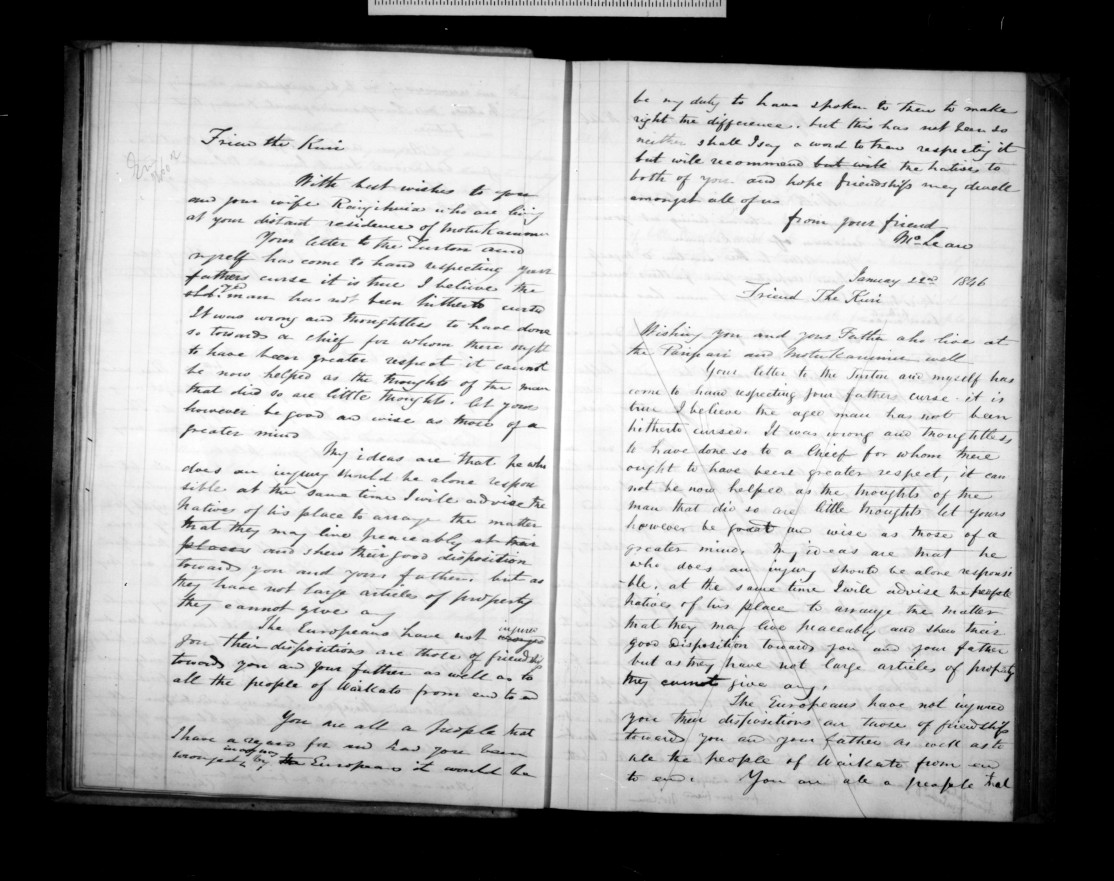 Friend the Kuri
With best wishes to you
and your wife Rangihuia who are living
at your distant residence of Motukaramu
Your letter to Mr Turton and
myself has come to hand respecting your
fathers curse it is true I believe the
man has not been hitherto cursed
It was wrong and thoughtless to have done
so towards a chief for whom there ought
to have been greater respect it cannot
be now helped as the thoughts of the man
that did so are little thoughts. let yours
however be good and wise as those of a
greater mind
My ideas are that he who
does an injury should be alone respon
sible at the same time I will advise the
Natives of his place to arrange the matter
that they may live peaceably at their
places and shew their good disposition
toward you and your father. but as
they have not large articles of property
they cannot give any
The Europeans have not injured wronged
you their dispositions are those of friendship
towards you and your father as well as to
all the people of Waikato from end to end
You are all a people that
I have a regard for and had you been
wronged by the Europeans it would be
be my duty to have spoken to them to make
right the difference. but this has not been so
neither shall I say a word to them respecting it
but will recommend but will the natives to
both of you and hope friendship may dwell
amongst all of us
from your friend
McLean
January 22nd 1846
Friend The Kuri
Wishing you and your Father who live at
the Paripari and Motukaramu well
Your letter to Mr Turton and myself has
come to hand respecting your father curse. it is
true I believe the aged man has not been
hitherto cursed. It was wrong and thoughtless
to have done so to a Chief for whom there
ought to have been greater respect, it can
not be now helped as the thoughts of the
man that did so are little thoughts let yours
however be great and wise as those of a
greater mind. My ideas are that he
who does an injury should be alone responsi
ble. at the same time I will advise the people
Natives of his place to arrange the matter
that they may live peaceably and shew their
good disposition towards you and your father
but as they have not large articles of property
they cannot give any.
The Europeans have not injured
you their dispositions are those of friendship
towards you and your father as well as to
all the people of Waikato from end
to end. You are all a people that